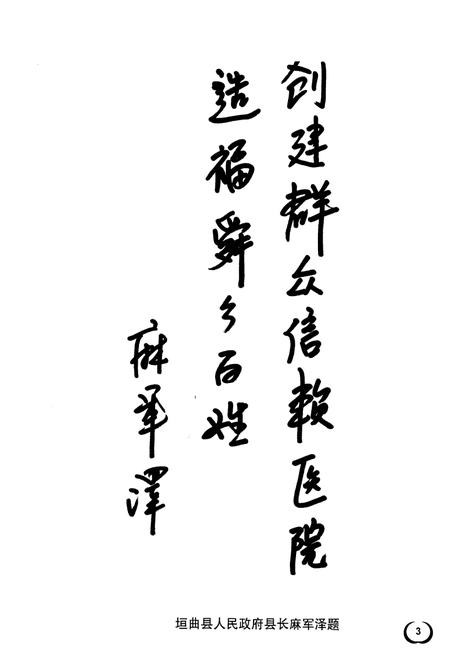 创建群众信赖医院
造福舜乡百姓
麻军泽
垣曲县人民政府县长麻军泽题
3